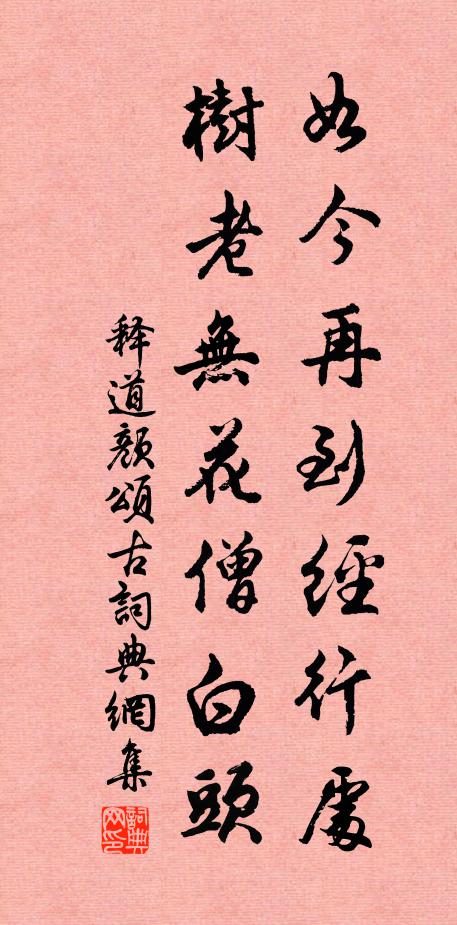 如今再到經行處
樹老無花僧白頭
释道颜頌古詞典網集
詞典网印